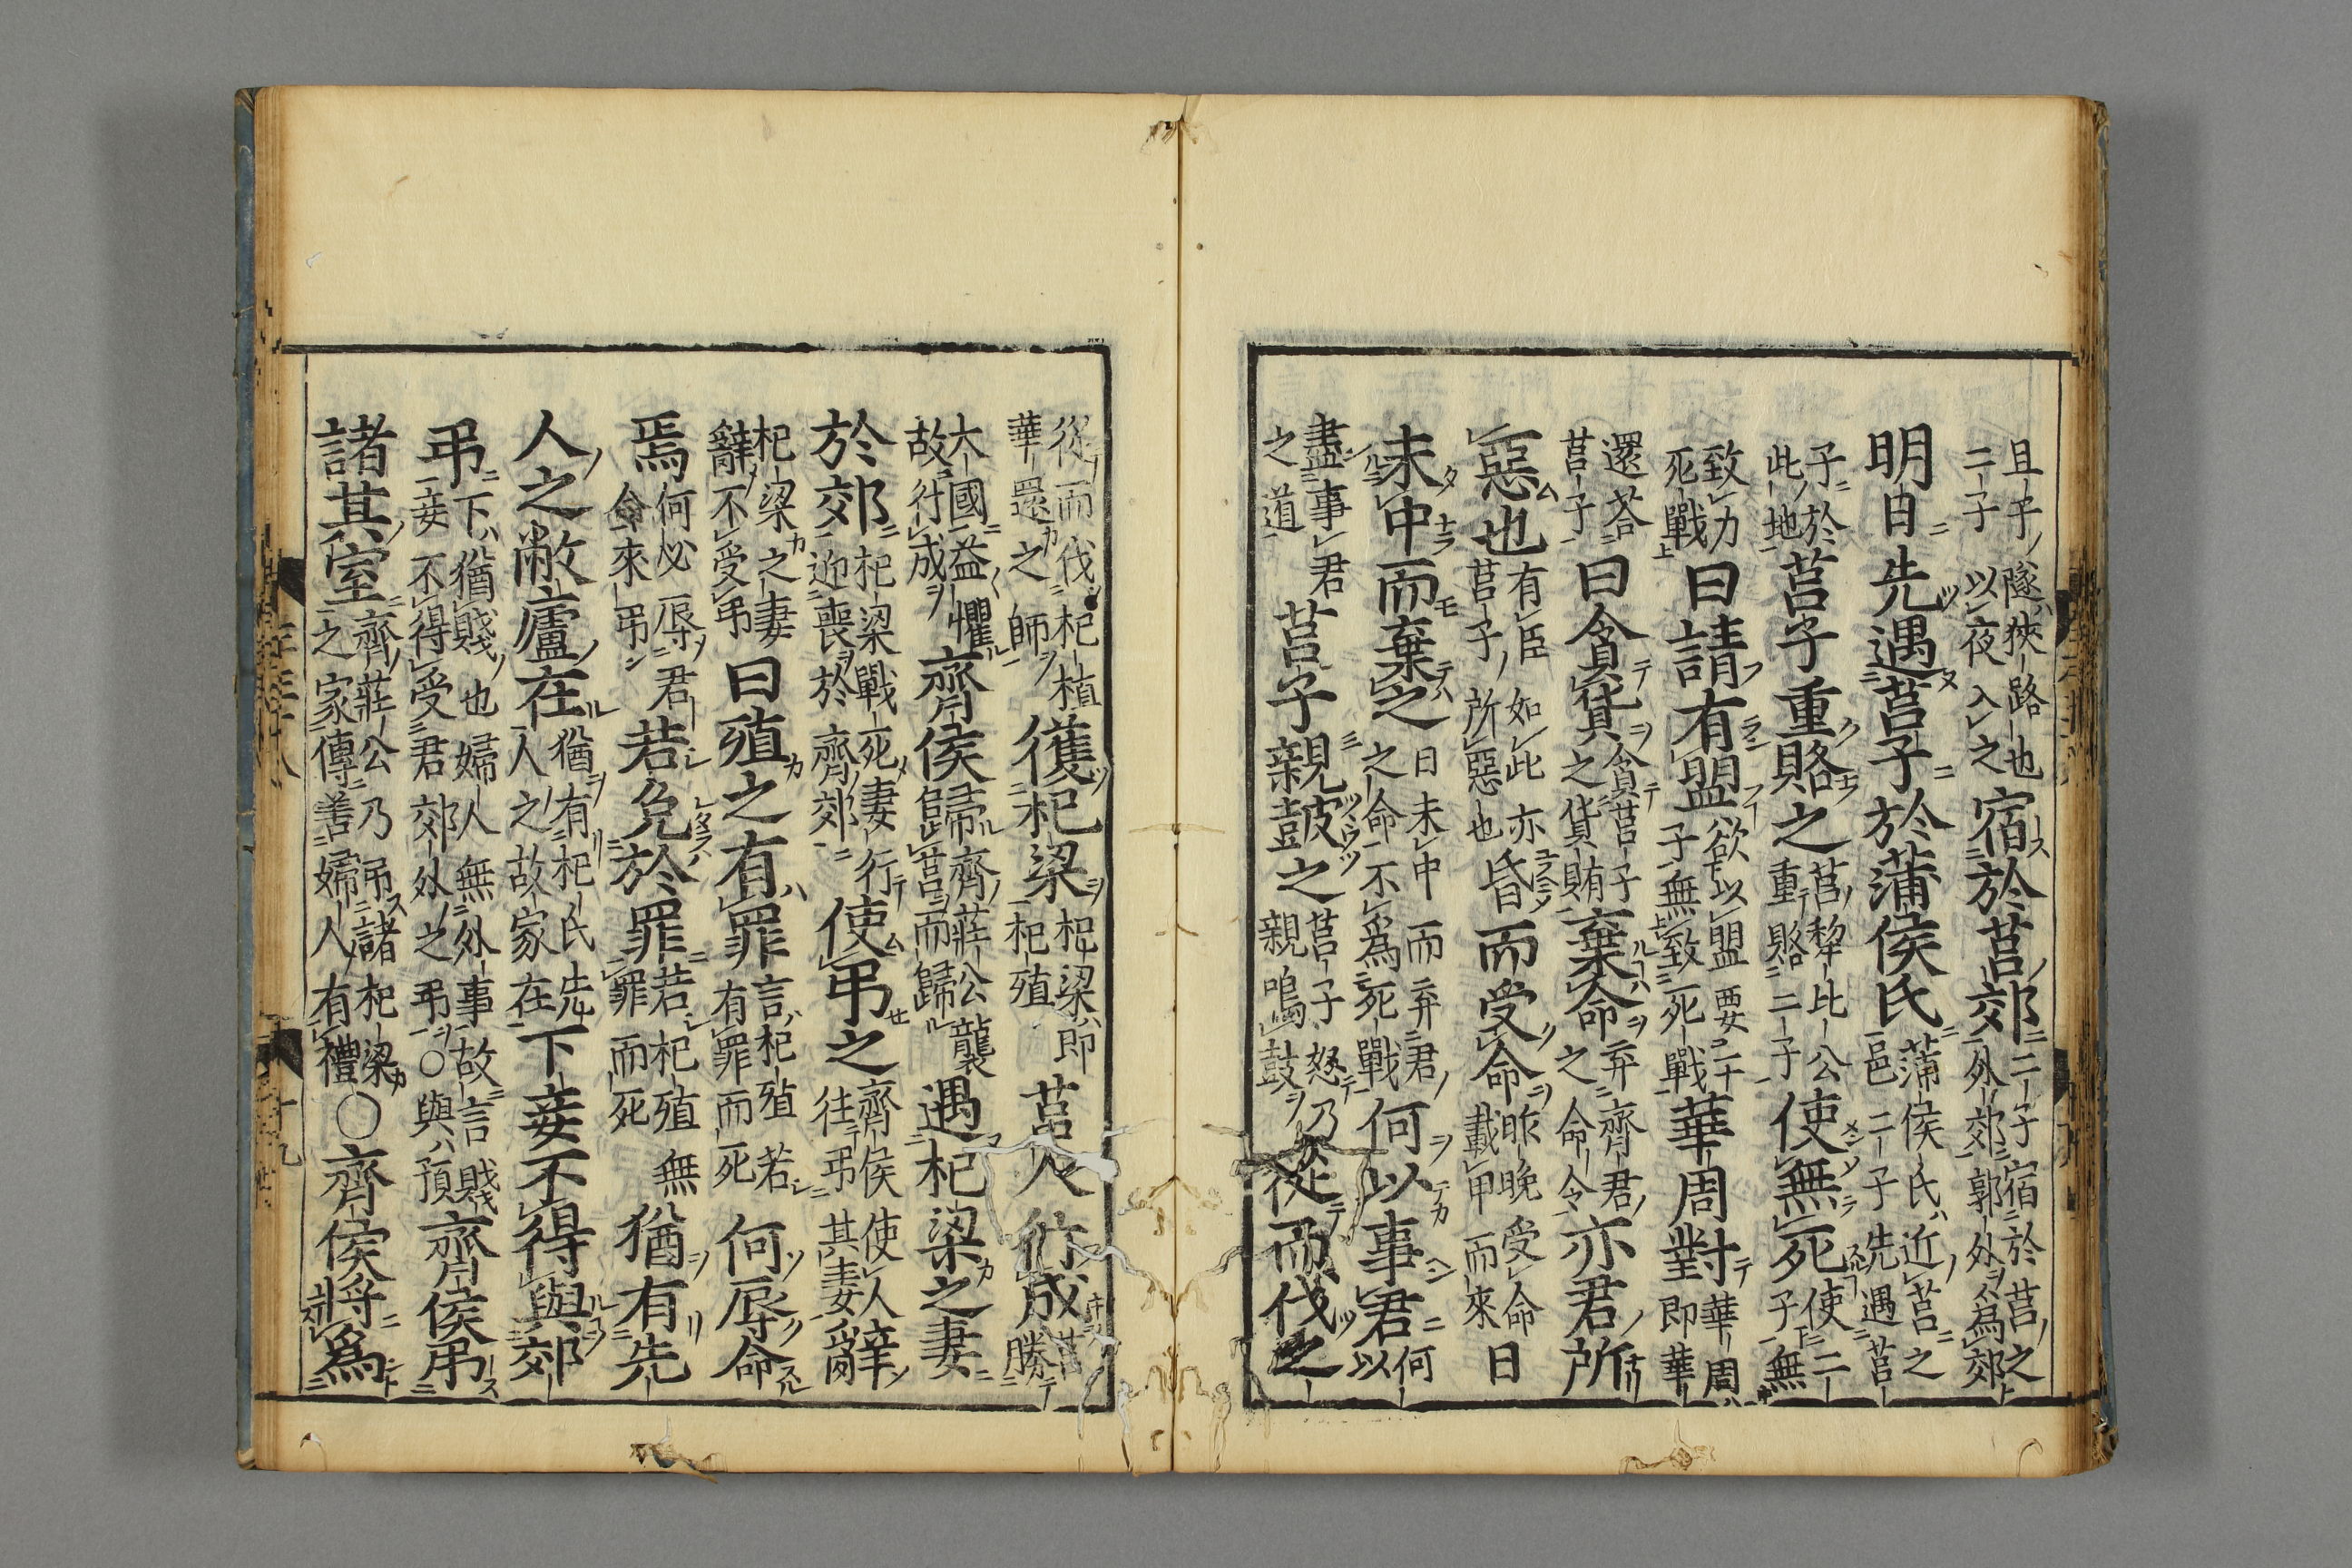 且于隧狹路也宿於莒郊二子宿於莒之
二子以夜入之外郊郭外爲郊
明日先遇莒子於蒲侯氏蒲侯氏近莒之
邑二子先遇莒
子於莒子重賂之莒犂比公使無死使二
此地重賂二子子無
致力曰請有盟欲以盟要二子華周對華周
死戰子無致死戰即華
還荅曰貪貨貪莒子棄命弃齊君亦君所
莒子之貨賄之命令
惡也有臣如此亦昏而受命昨晚受命日
莒子所惡也載甲而來
未中而棄之日未中而弃君何以事君何
之命不爲死戰以
盡事君莒子親鼓之莒子怒乃從而伐之
之道親鳴鼓
從而伐杞植獲杞梁杞梁即莒人行成莒
華還之師杞殖勝
大國益懼齊侯歸齊莊公襲遇杞梁之妻
故行成莒而歸
於郊杞梁戰死妻行使弔之齊侯使人辭
迎喪於齊郊往弔其妻
杞梁之妻曰殖之有罪言杞殖若何辱命
辭不受弔有罪而死
焉何必辱君若免於罪若杞殖無猶有先
命來弔罪而死
人之敝廬在猶有杞氏先下妾不得與郊
人之故家在
弔下猶賤也婦人無外事故言賤齊侯弔
妾不得受君郊外之弔○與預
諸其室齊莊公乃弔諸杞梁○齊侯將爲
之家傳善婦人有禮